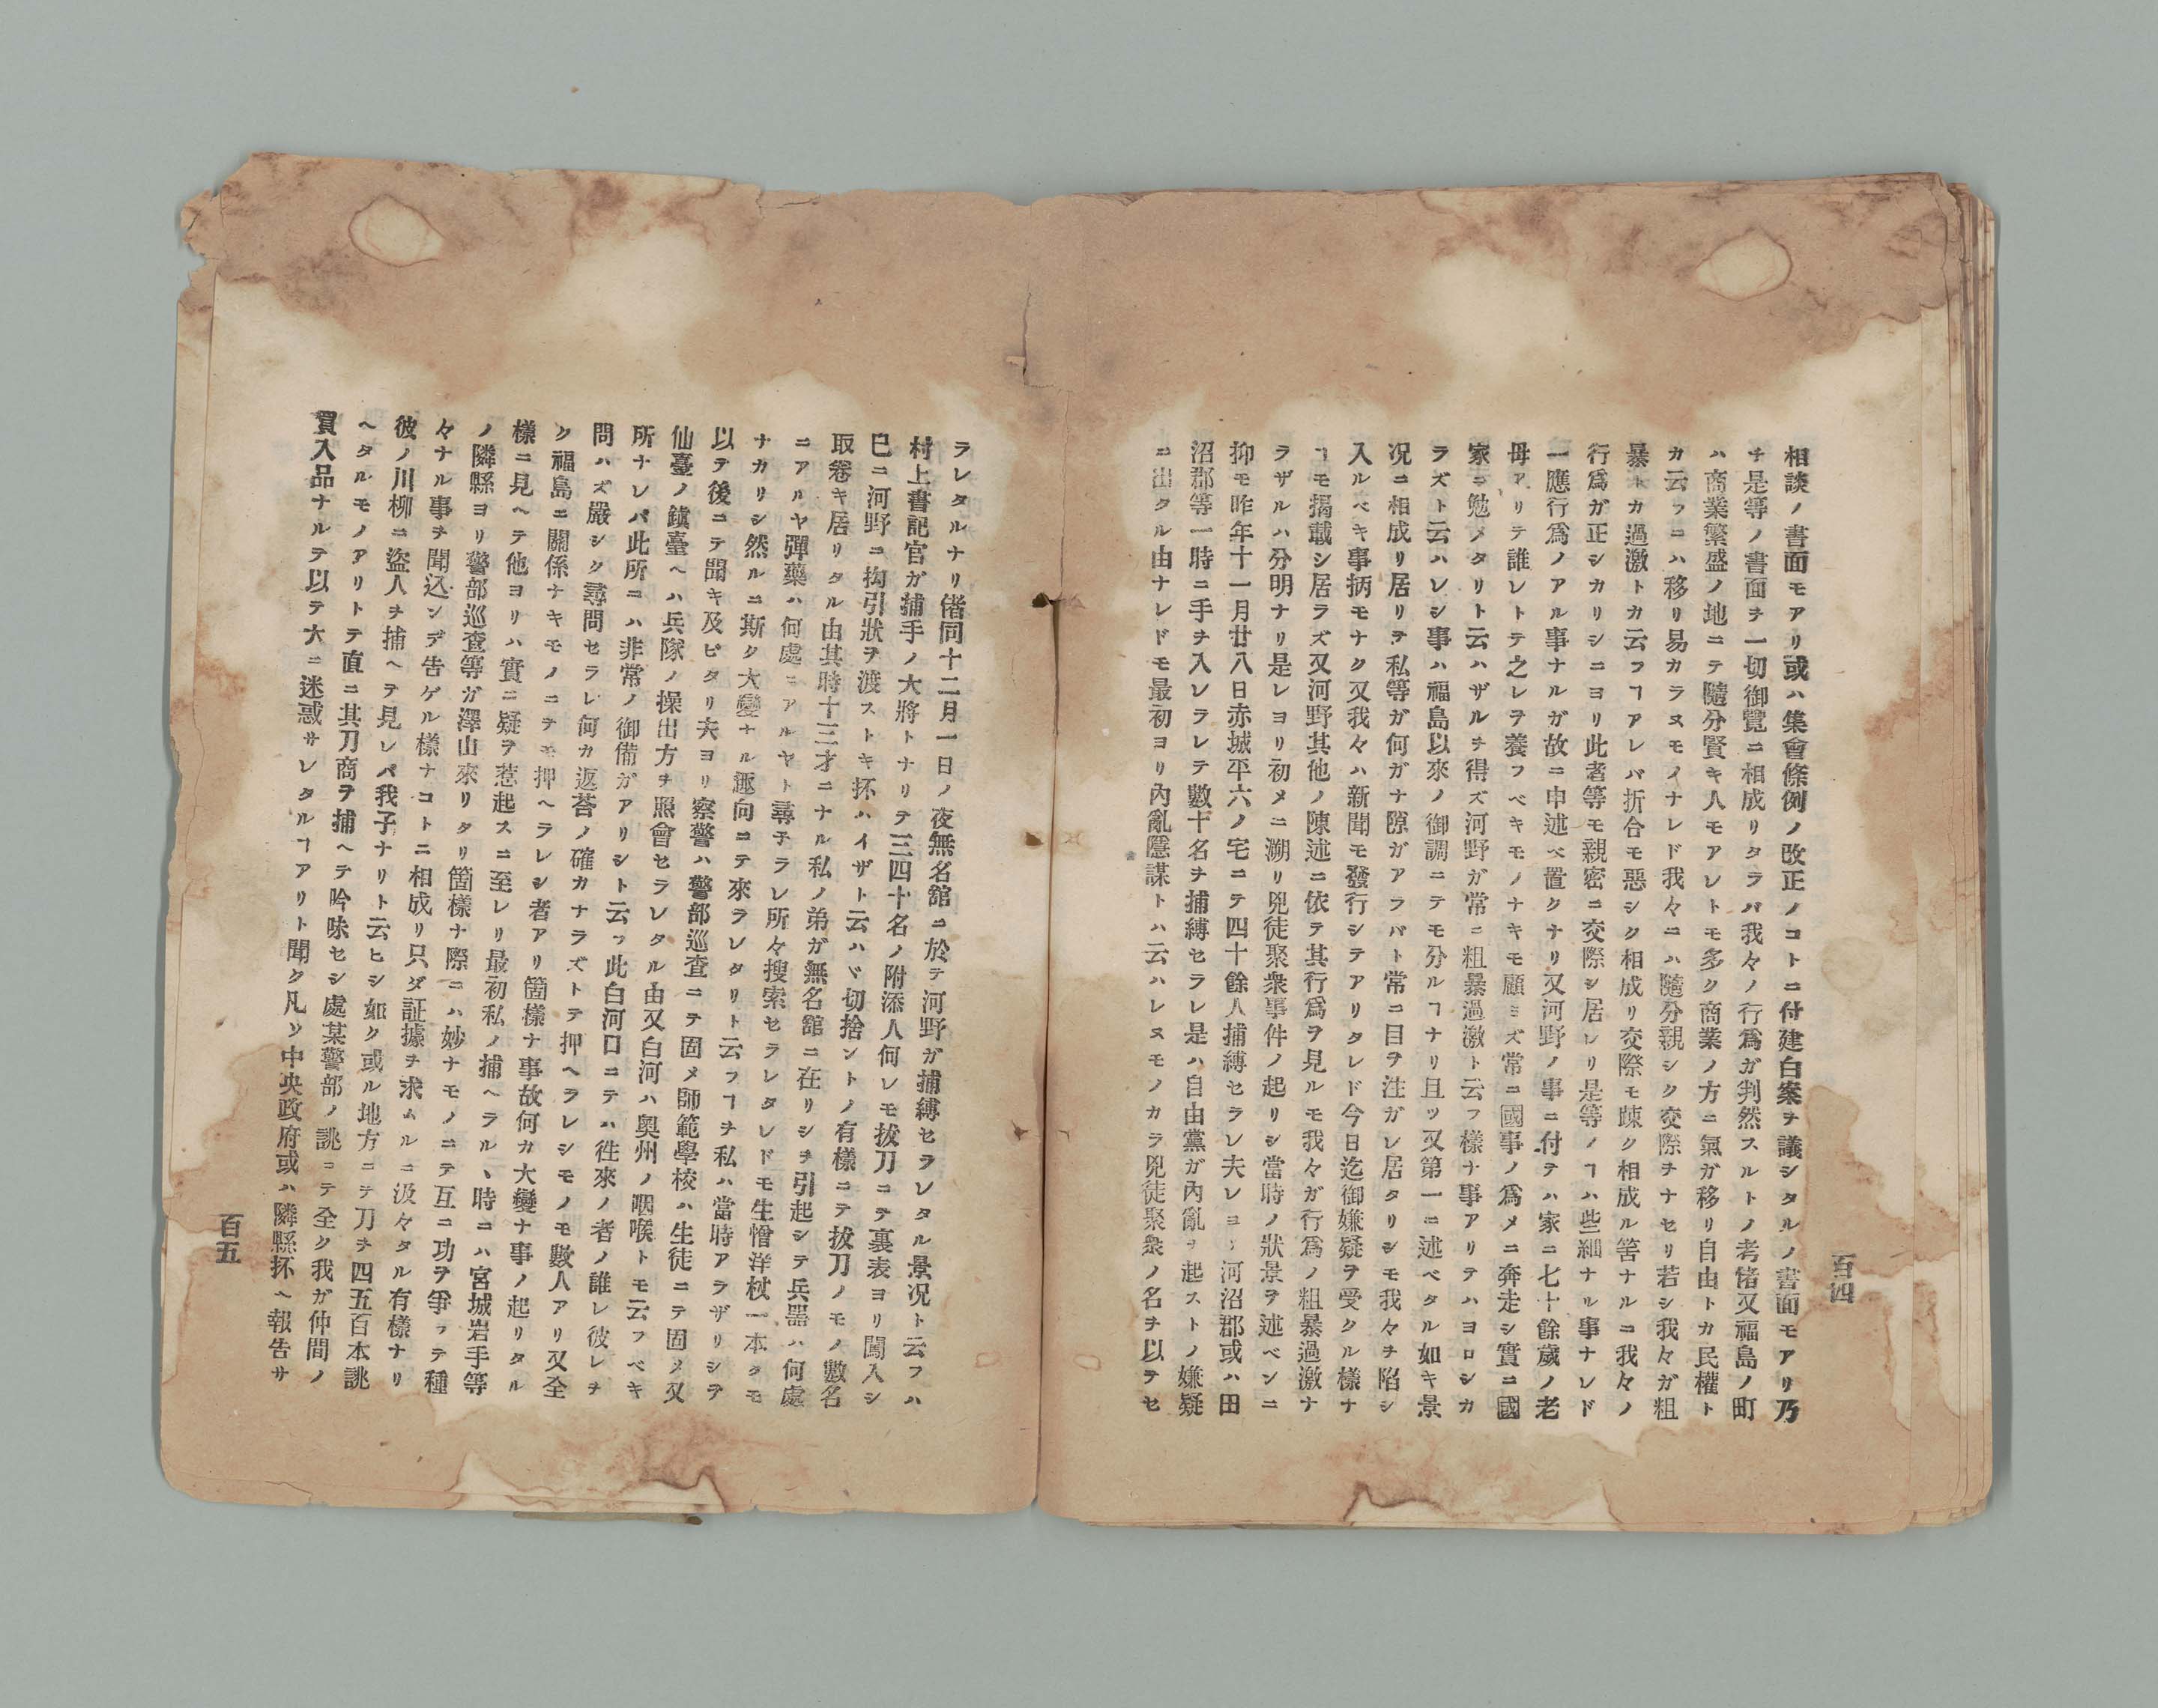 百四
相談ノ書面モアリ或ハ集會條例ノ改正ノコトニ付建白案ヲ議シタルノ書面モアリ乃
チ是等ノ書面ヲ一切御覽ニ相成リタラバ我々ノ行爲ガ判然スルトノ考偖又福島ノ町
ハ商業繁盛ノ地ニテ隨分賢キ人モアレトモ多ク商業ノ方ニ氣ガ移リ自由トカ民權ト
カ云フニハ移リ易カラヌモノナレド我々ニハ隨分親シク交際ヲナセリ若シ我々ガ粗
暴トカ過激トカ云フヿアレバ折合モ惡シク相成リ交際モ踈ク相成ル筈ナルニ我々ノ
行爲ガ正シカリシニヨリ此者等モ親密ニ交際シ居レリ是等ノヿハ些細ナル事ナレド
一應行爲ノアル事ナルガ故ニ申述ベ置クナリ又河野ノ事ニ付テハ家ニ七十餘歲ノ老
母アリテ誰レトテ之レヲ養フベキモノナキモ顧ミズ常ニ國事ノ爲メニ奔走シ實ニ國
家ニ勉メタリト云ハザルヲ得ズ河野ガ常ニ粗暴過激ト云フ樣ナ事アリテハヨロシカ
ラズト云ハレシ事ハ福島以來ノ御調ニテモ分ルヿナリ且ツ又第一ニ述ベタル如キ景
况ニ相成リ居リヲ私等ガ何ガナ隙ガアラバト常ニ目ヲ注ガレ居タリシモ我々ヲ陷シ
入ルベキ事柄モナク又我々ハ新聞モ發行シテアリタレド今日迄御嫌疑ヲ受クル樣ナ
ヿモ揭載シ居ラズ又河野其他ノ陳述ニ依テ其行爲ヲ見ルモ我々ガ行爲ノ粗暴過激ナ
ラザルハ分明ナリ是レヨリ初メニ溯リ兇徒聚衆事件ノ起リシ當時ノ狀景ヲ述ベンニ
抑モ昨年十一月廿八日赤城平六ノ宅ニテ四十餘人捕縛セラレ夫レヨリ河沼郡或ハ田
沼郡等一時ニ手ヲ入レラレテ數十名ヲ捕縛セラレ是ハ自由黨ガ內亂ヲ起ストノ嫌疑
ニ出タル由ナレドモ最初ヨリ內亂隱謀トハ云ハレヌモノカラ兇徒聚衆ノ名ヲ以テセ
ラレタルナリ偖同十二月一日ノ夜無名舘ニ於テ河野ガ捕縛セラレタル景况ト云フハ
村上書記官ガ捕手ノ大將トナリテ三四十名ノ附添人何レモ拔刀ニテ裏表ヨリ闖入シ
巳ニ河野ニ拘引狀ヲ渡ストキ抔ハイザト云ハヾ切捨ントノ有樣ニテ拔刀ノモノ數名
取卷キ居リタル由其時十三才ニナル私ノ弟ガ無名舘ニ在リシヲ引起シテ兵噐ハ何處
ニアルヤ彈藥ハ何處ニアルヤト尋子ラレ所々搜索セラレタレドモ生憎洋杖一本タモ
ナカリシ然ルニ斯ク大變ナル趣向ニテ來ラレタリト云フヿヲ私ハ當時アラザリシヲ
以テ後ニテ聞キ及ビタリ夫ヨリ察警ハ警部巡査ニテ固メ師範學校ハ生徒ニテ固メ又
仙臺ノ鎭臺ヘハ兵隊ノ操出方ヲ照會セラレタル由又白河ハ奧州ノ咽喉トモ云フベキ
所ナレバ此所ニハ非常ノ御備ガアリシト云フ此白河口ニテハ徃來ノ者ノ誰レ彼レヲ
問ハズ嚴シク尋問セラレ何カ返荅ノ確カナラズトテ押ヘラレシモノモ數人アリ又全
ク福島ニ關係ナキモノニテモ押ヘラレシ者アリ箇樣ナ事故何カ大變ナ事ノ起リタル
樣ニ見ヘテ他ヨリハ實ニ疑ヲ惹起スニ至レリ最初私ノ捕ヘラルヽ時ニハ宮城岩手等
ノ隣縣ヨリ警部巡査等ガ澤山來リタリ箇樣ナ際ニハ妙ナモノニテ互ニ功ヲ爭フテ種
々ナル事ヲ聞込ンデ告ゲル樣ナコトニ相成リ只ダ証據ヲ求ムルニ汲々タル有樣ナリ
彼ノ川柳ニ盜人ヲ捕ヘテ見レバ我子ナリト云ヒシ如ク或ル地方ニテ刀ヲ四五百本誂
ヘタルモノアリトテ直ニ其刀商ヲ捕ヘテ吟味セシ處某警部ノ誂ニテ全ク我ガ仲間ノ
買入品ナルヲ以テ大ニ迷惑サレタルヿアリト聞ク凡ソ中央政府或ハ隣縣抔ヘ報告サ
百五